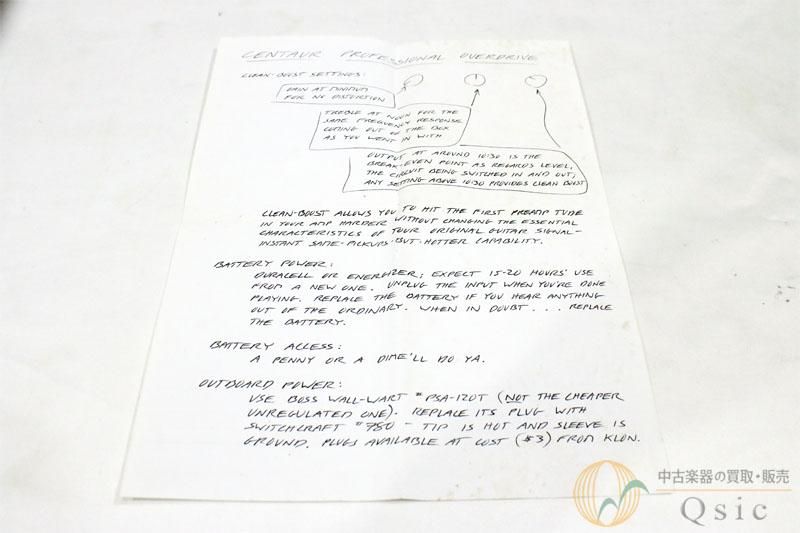 CENTAUR PROFESSIONAL OVERDRIVE
CLEAN-BOOST SETTINGS:
GAIN AT MINIMUM
FOR NO DISTORTION
TREBLE AT NOON FOR THE
SAME FREQUENCY RESPONSE
COMING OUT OF THE BOX
AS YOU WENT IN WITH
OUTPUT AT AROUND 10:30 IS THE
BREAK-EVEN POINT AS REGARDS LEVEL,
THE CIRCUIT BEING SWITCHED IN AND OUT;
ANY SETTING ABOVE 10:30 PROVIDES CLEAN BOOST
CLEAN-BOOST ALLOWS YOU TO HIT THE FIRST PREAMP TUBE
IN YOUR AMP HARDER WITHOUT CHANGING THE ESSENTIAL
CHARACTERISTICS OF YOUR ORIGINAL GUITAR SIGNAL-
INSTANT SAME-PICKUPS-BUT-HOTTER CAPABILITY.
BATTERY POWER:
DURACELL OR ENERGIZER; EXPECT 15-20 HOURS' USE
FROM A NEW ONE. UNPLUG THE INPUT WHEN YOU'RE DONE
PLAYING. REPLACE THE BATTERY IF YOU HEAR ANYTHING
OUT OF THE ORDINARY. WHEN IN DOUBT . . . REPLACE
THE BATTERY.
BATTERY ACCESS:
A PENNY OR A DIME'LL DO YA.
OUTBOARD POWER:
USE BOSS WALL-WART # PSA-120T (NOT THE CHEAPER
UNREGULATED ONE). REPLACE ITS PLUG WITH
SWITCHCRAFT # 780 - TIP IS HOT AND SLEEVE IS
GROUND. PLUGS AVAILABLE AT COST ($3) FROM KLON.
中古楽器の買取・販売
Qsic